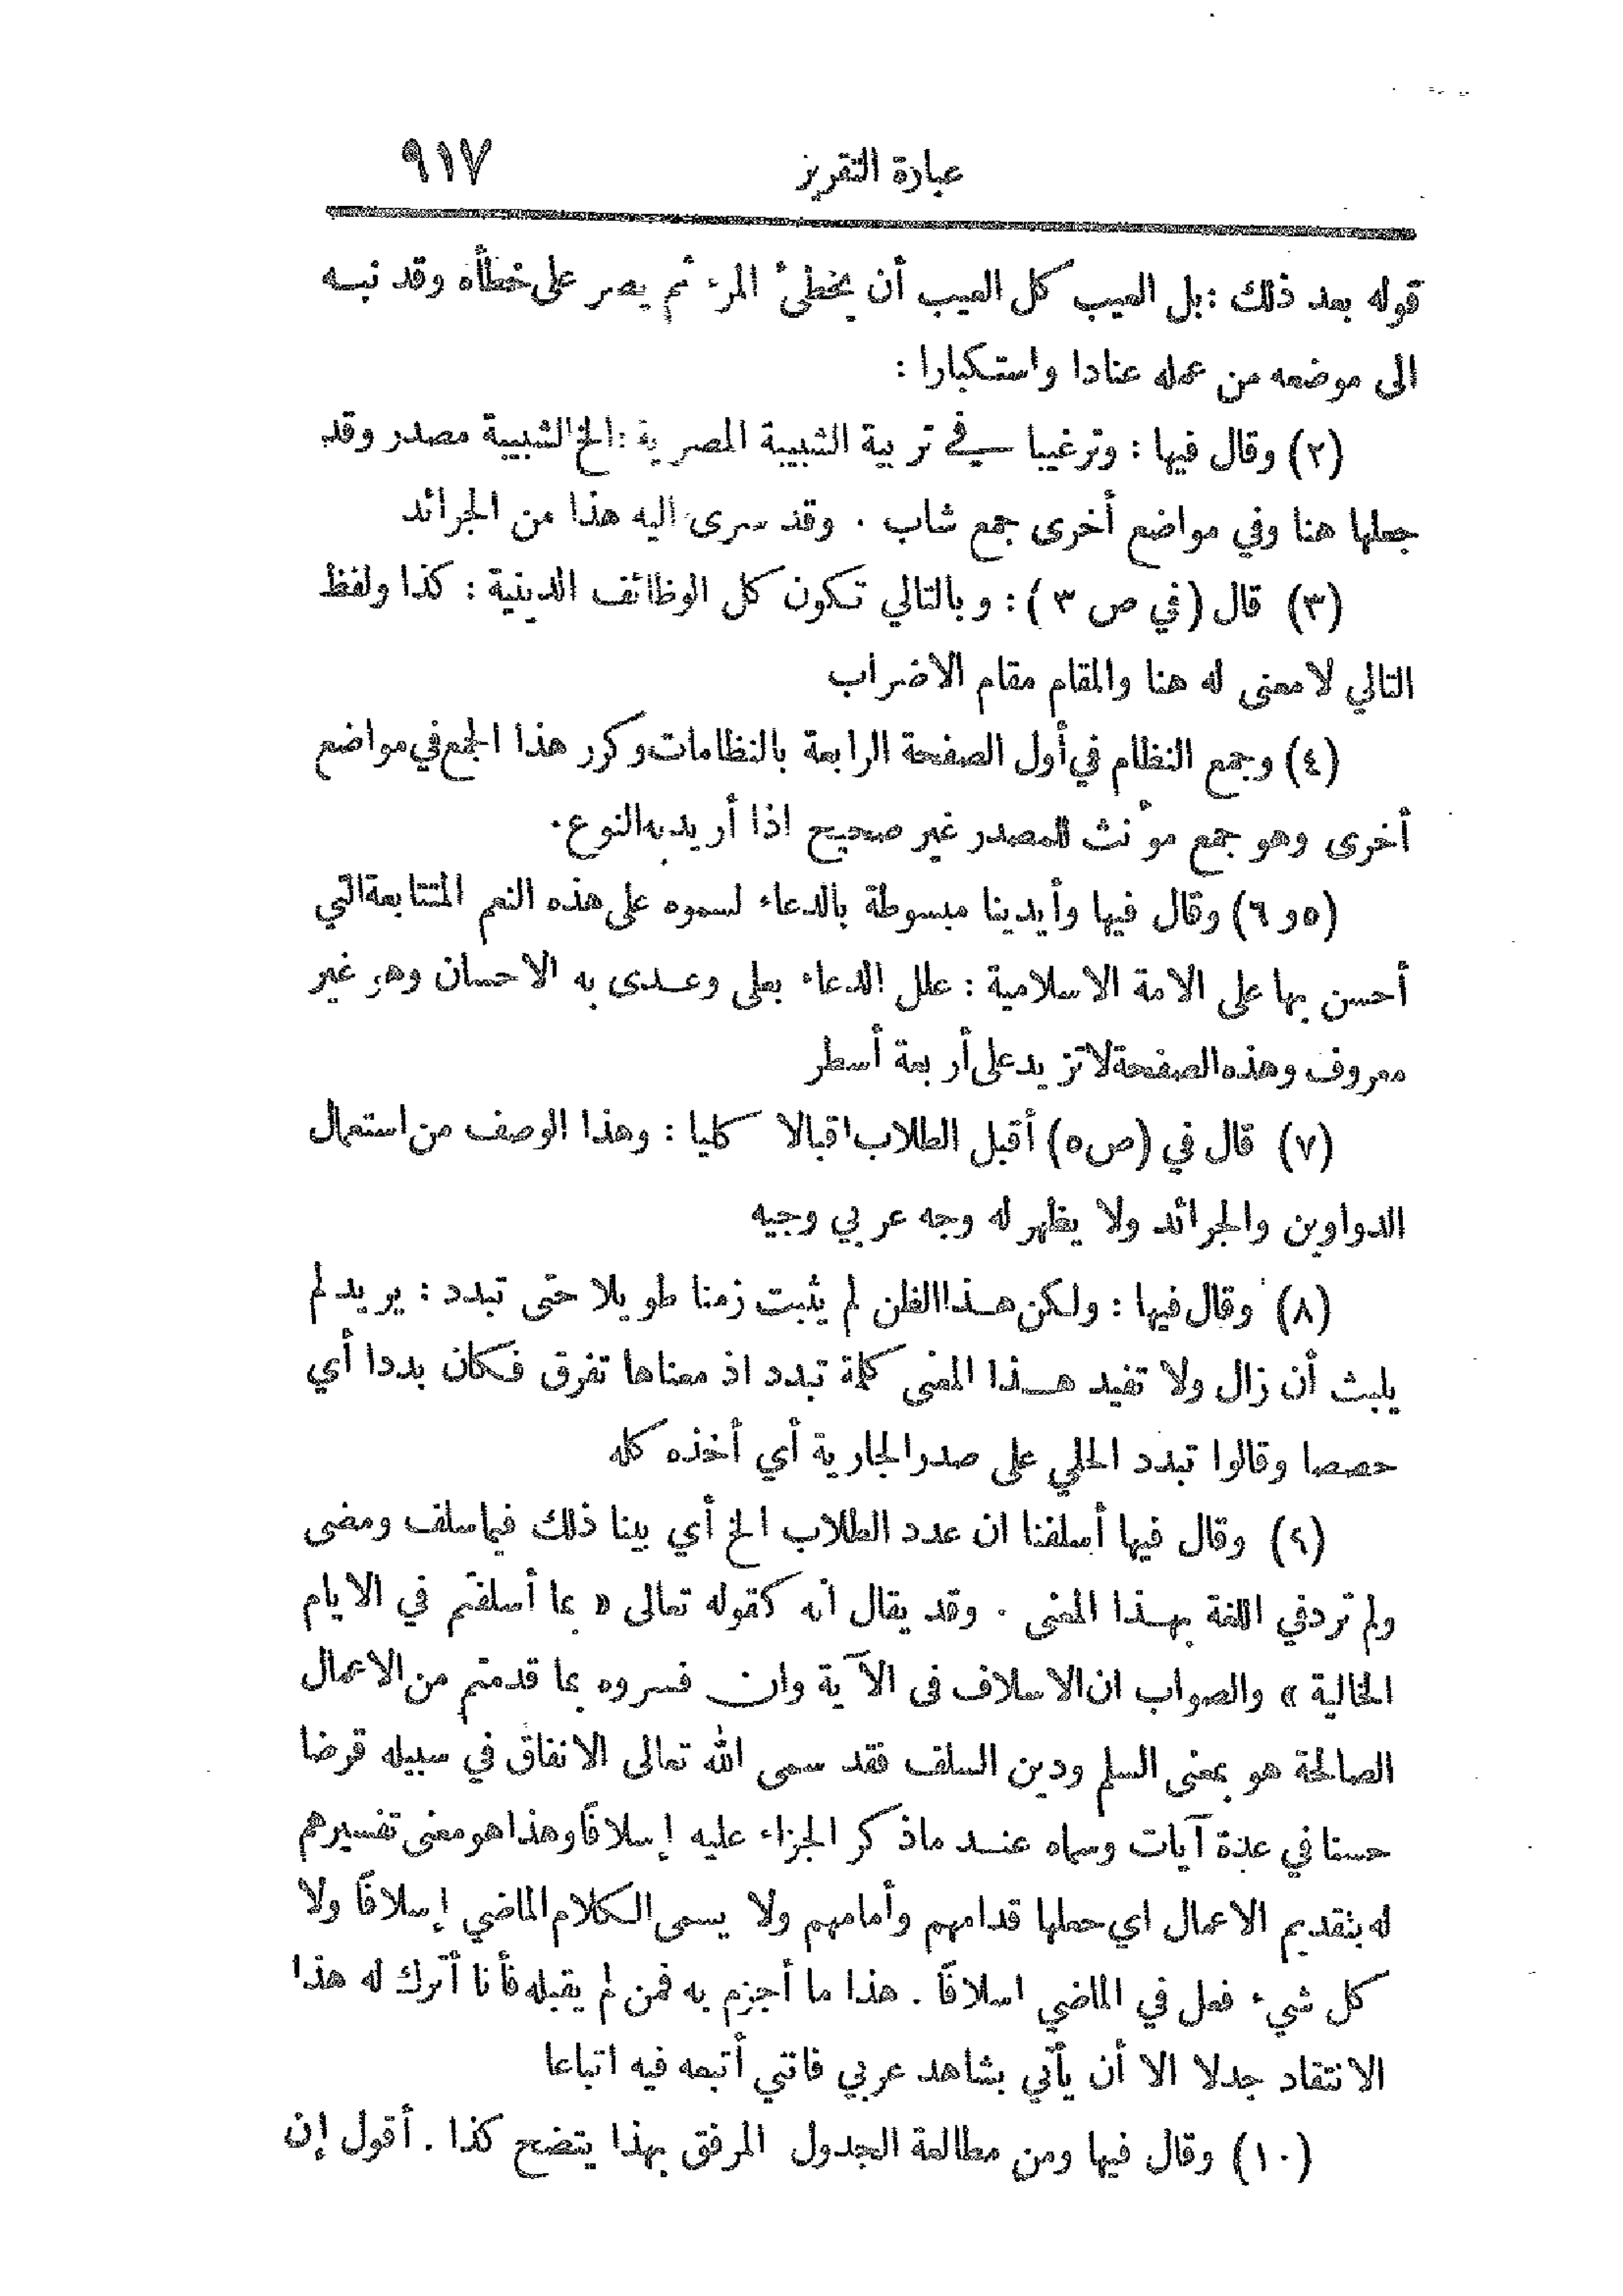 عبارة التقرير ٩١٧
قوله بعد ذلك : بل العيب كل العيب أن يخطئ المرء ثم يصر على خطأه وقد نبه
الى موضعه من عمله عنادا واستكبارا :
(٢) وقال فيها : وترغيبا في تربية الشبيبة المصرية : الخ الشبيبة مصدر وقد
جعلها هنا وفي مواضع أخرى جمع شاب . وقد سرى اليه هذا من الجرائد
(٣) قال (في ص ٣) : وبالتالي تكون كل الوظائف الدينية : كذا ولفظ
التالي لا معنى له هنا والمقام مقام الاضراب
(٤) وجمع النظام في أول الصفحة الرابعة بالنظامات وكرر هذا الجمع في مواضع
أخرى وهو جمع مؤنث للمصدر غير صحيح اذا أريد به النوع .
(٥ و ٦) وقال فيها وأيدينا مبسوطة بالدعاء لسموه على هذه النعم المتتابعة التي
أحسن بها على الامة الاسلامية : علل الدعاء بعلى وعدى به الاحسان وهو غير
معروف وهذه الصفحة لا تزيد على أربعة أسطر
(٧) قال في (ص ٥) أقبل الطلاب اقبالا كليا : وهذا الوصف من استعمال
الدواوين والجرائد ولا يظهر له وجه عربي وجيه
(٨) وقال فيها : ولكن هذا الظن لم يثبت زمنا طويلا حتى تبدد : يريد لم
يلبث أن زال ولا تفيد هذا المعنى كلمة تبدد اذ معناها تفرق فكان بددا أي
حصصا وقالوا تبدد الحلي على صدر الجارية أي أخذه كله
(٩) وقال فيها أسلفنا ان عدد الطلاب الخ أي بينا ذلك فيما سلف ومضى
ولم ترد في اللغة بهذا المعنى . وقد يقال انه كقوله تعالى « بما أسلفتم في الايام
الخالية » والصواب ان الاسلاف فى الآية وان فسروه بما قدمتم من الاعمال
الصالحة هو بمعنى السلم ودين السلف فقد سمى الله تعالى الانفاق في سبيله قرضا
حسنا في عدة آيات وسماه عند ماذكر الجزاء عليه إسلافًا وهذا هو معنى تفسيرهم
له بتقديم الاعمال اي جعلها قدامهم وأمامهم ولا يسمى الكلام الماضي إسلافًا ولا
كل شيء فعل في الماضي اسلافًا . هذا ما أجزم به فمن لم يقبله فأنا أترك له هذا
الانتقاد جدلا الا أن يأتي بشاهد عربي فانني أتبعه فيه اتباعا
(١٠) وقال فيها ومن مطالعة الجدول المرفق بهذا يتضح كذا . أقول إن